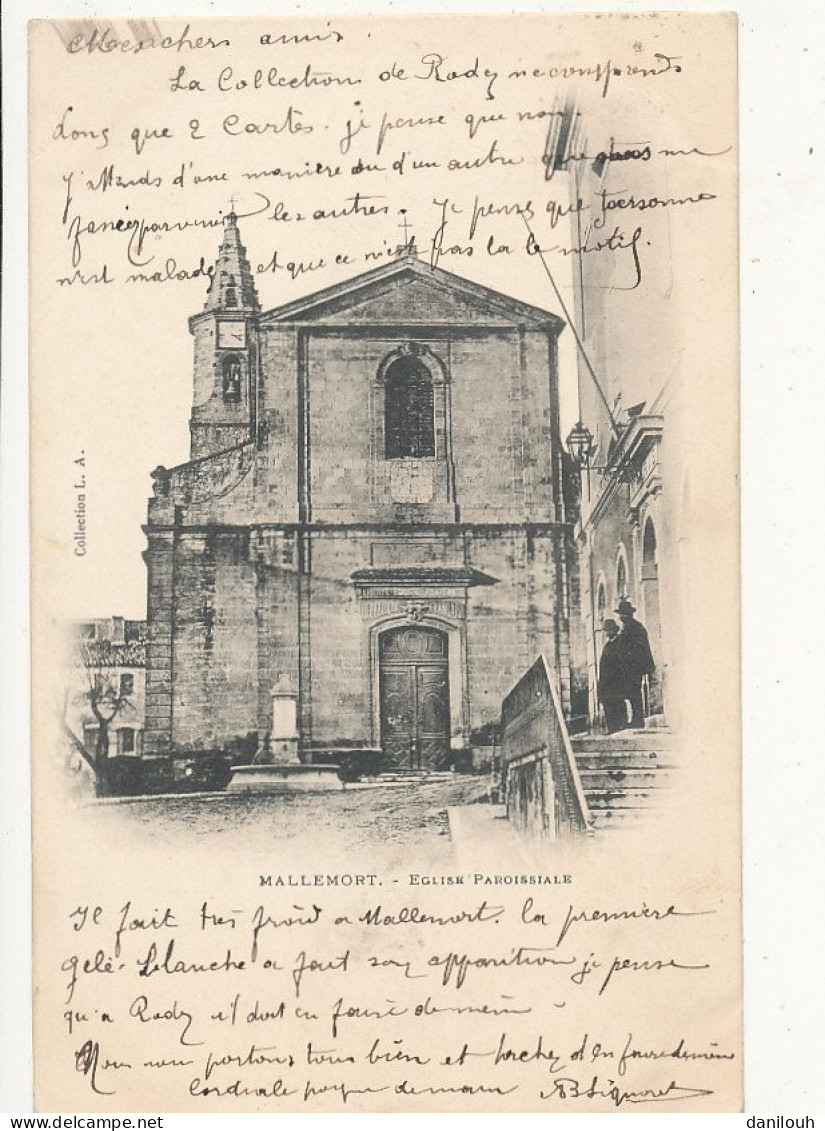 Mes chers amis.
La Collection de Rody ne comprends
donc que 2 Cartes. je pense que non.
j'attends d'une manière ou d'un autre que vous me
fariez parvenir les autres. Je pense que personne
n'est malade, et que ce n'est pas la le motif.
Collection L. A.
MALLEMORT. - EGLISE PAROISSIALE
Il fait très froid a Mallemort. la première
gelé blanche a fait son apparition je pense
qu'a Rody il doit en faire de même
Nous nous portons tous bien et tachez d'en faire de même
Cordiale poigne de main ABSignoret
danilouh